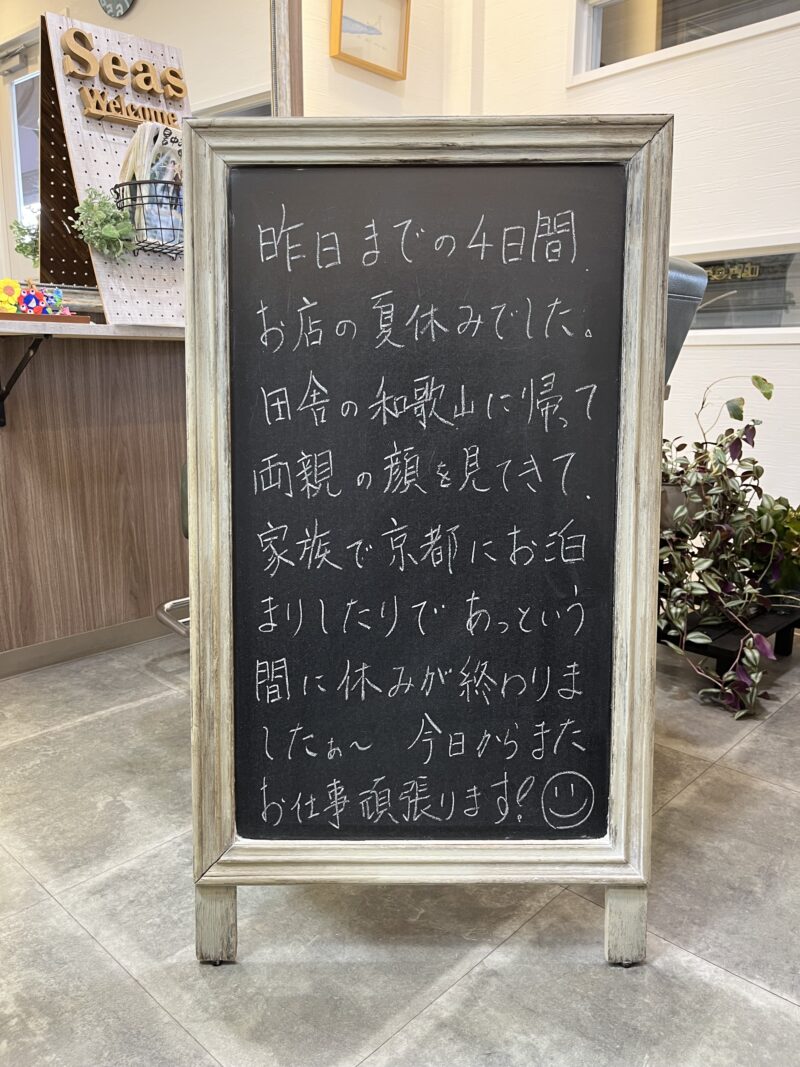 Seas
Welcome
昨日までの4日間、
お店の夏休みでした。
田舎の和歌山に帰って
両親の顔を見てきて、
家族で京都にお泊
まりしたりで あっという
間に休みが終わりま
したぁ〜 今日からまた
お仕事頑張ります!